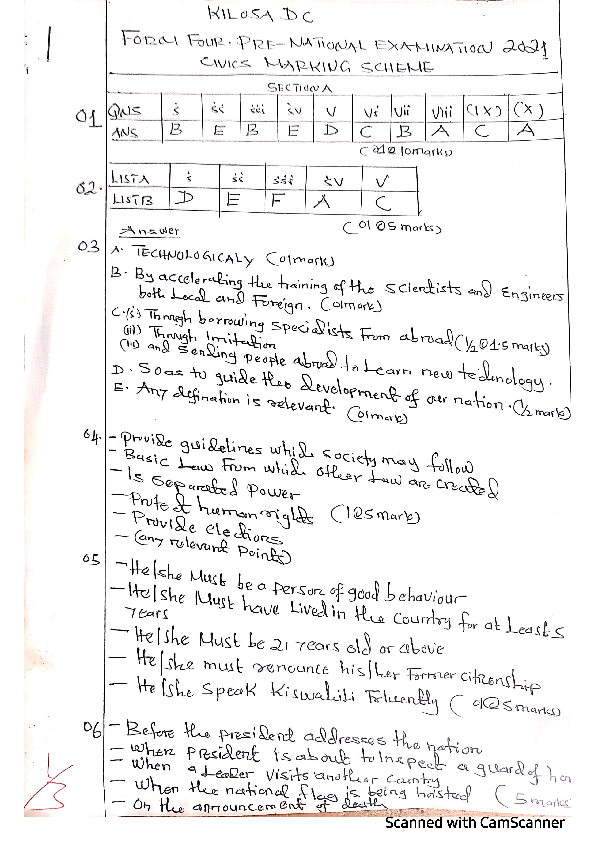 KILOSA DC
FORM FOUR. PRE-NATIONAL EXAMINATION 2021
CIVICS MARKING SCHEME
SECTION A
01 QNS i ii iii iv V Vi Vii Viii (IX) (X)
ANS B E B E D C B A C A
10marks)
02. LISTA i ii iii iv V
LISTB D E F A C
05 marks)
Answer
03 A. TECHNOLOGICALY (01mark)
B. By accelerating the training of the scientists and Engineers
both Local and Foreign. (01mark)
C.(i) Through borrowing specialists from abroad (½@1.5 marks)
(ii) Through Imitation
(iii) and sending people abroad to Learn new technology.
D. So as to guide the development of our nation. (½ mark)
E. Any defination is relevant. (01mark)
04. - Provide guidelines which society may follow
- Basic Law from which other Law are created
- Is separated power
- Protect human rights (1@5mark)
- Provide elections
- (any relevant points)
05 - He/she Must be a person of good behaviour
- He/she Must have Lived in the Country for at Least 5
years
- He/she Must be 21 years old or above
- He/she must renounce his/her former citizenship
- He/she Speak Kiswahili (5marks)
06 - Before the president addresses the nation
- When president is about to inspect a guard of hon
- When a Leader visits another Country
- When the national flag is being hoisted (5marks
- On the announcement of death
1/3
Scanned with CamScanner